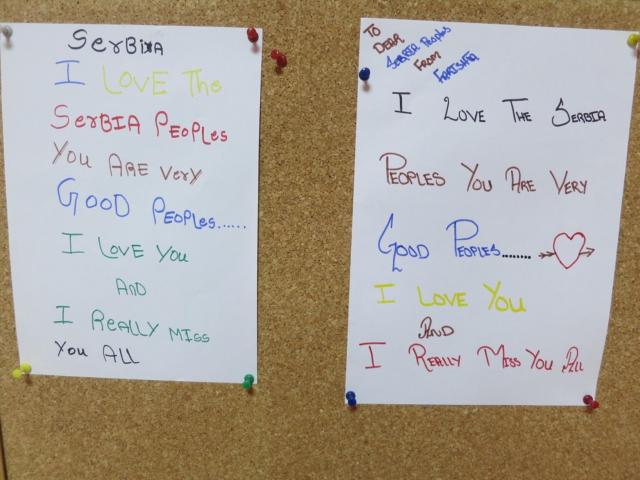 SerBiA
I LOVE The
SerBIA PEOPLes
YOU ARE Very
GOOD PEOPLes......
I LOVE YOU
AND
I REALLY MISS
You ALL
TO
DEAR
SERBIA PEOPLES
FROM
FARISHTA
I LOVE THE SERBIA
PEOPLES YOU ARE VERY
GOOD PEOPLES........
I LOVE YOU
AND
I REALLY MISS YOU ALL